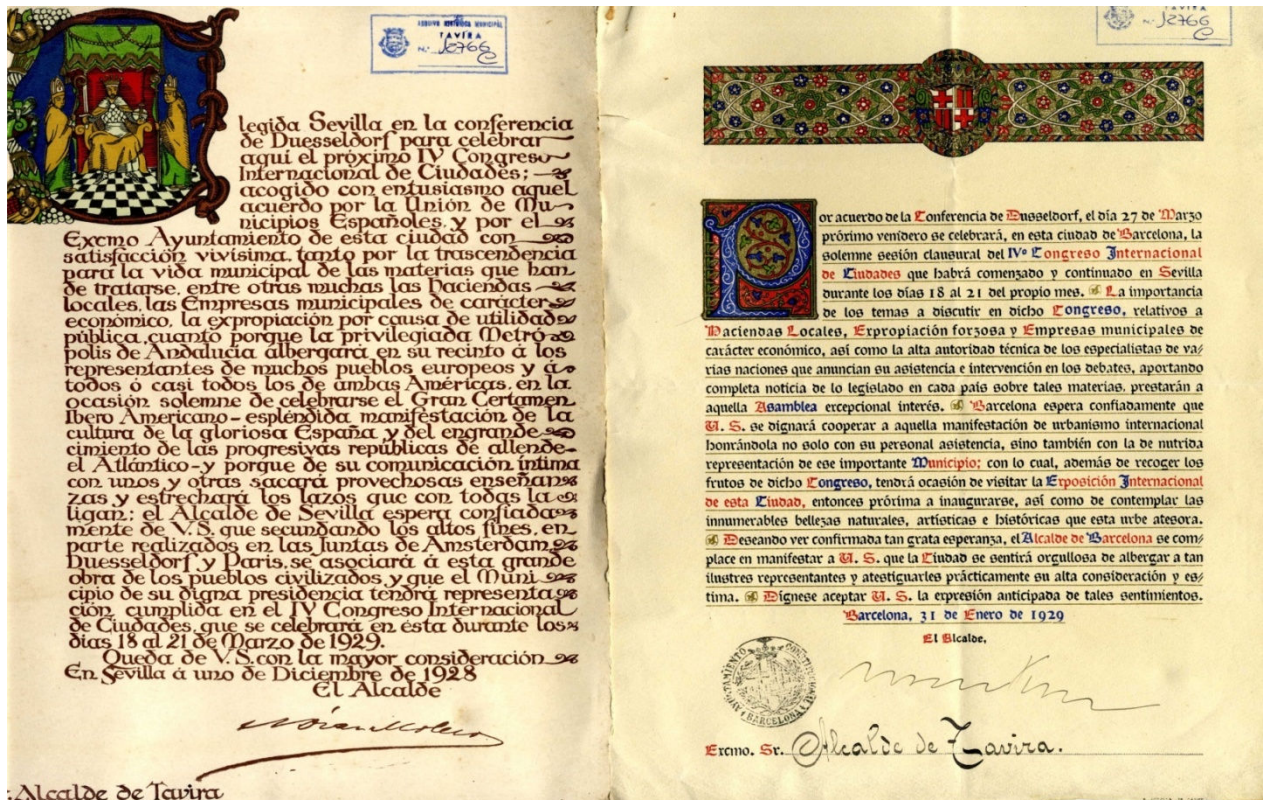 ARQUIVO HISTÓRICO MUNICIPAL
TAVIRA
N.º 12766
C
legida Sevilla en la conferencia
de Duesseldorf para celebrar
aquí el próximo IV Congreso
Internacional de Ciudades;
acogido con entusiasmo aquel
acuerdo por la Unión de Mu-
nicipios Españoles, y por el
Excmo Ayuntamiento de esta ciudad con
satisfacción vivísima, tanto por la trascendencia
para la vida municipal de las materias que han
de tratarse, entre otras muchas las Haciendas
locales, las Empresas municipales de carácter
económico, la expropiación por causa de utilidad
pública, cuanto porque la privilegiada Metró
polis de Andalucía albergará en su recinto á los
representantes de muchos pueblos europeos y á
todos ó casi todos los de ambas Américas, en la
ocasión solemne de celebrarse el Gran Certamen
Ibero Americano - espléndida manifestación de la
cultura de la gloriosa España y del engrande
cimiento de las progresivas repúblicas de allende
el Atlántico - y porque de su comunicación íntima
con unos y otras sacará provechosas enseñan
zas y estrechará los lazos que con todas la
ligan; el Alcalde de Sevilla espera confiada
mente de V.S. que secundando los altos fines, en
parte realizados en las Juntas de Amsterdam,
Duesseldorf y Paris, se asociará á esta grande
obra de los pueblos civilizados, y que el Muni
cipio de su digna presidencia tendrá representa
ción cumplida en el IV Congreso Internacional
de Ciudades, que se celebrará en ésta durante los
días 18 al 21 de Marzo de 1929.
Queda de V.S. con la mayor consideración
En Sevilla á uno de Diciembre de 1928
El Alcalde
Alcalde de Tavira
TAVIRA
N.º 12766
C
Por acuerdo de la Conferencia de Dusseldorf, el día 27 de Marzo
próximo venidero se celebrará, en esta ciudad de Barcelona, la
solemne sesión clausural del IVº Congreso Internacional
de Ciudades que habrá comenzado y continuado en Sevilla
durante los días 18 al 21 del propio mes. La importancia
de los temas a discutir en dicho Congreso, relativos a
Haciendas Locales, Expropiación forzosa y Empresas municipales de
carácter económico, así como la alta autoridad técnica de los especialistas de va-
rias naciones que anuncian su asistencia e intervención en los debates, aportando
completa noticia de lo legislado en cada país sobre tales materias, prestarán a
aquella Asamblea excepcional interés. Barcelona espera confiadamente que
U. S. se dignará cooperar a aquella manifestación de urbanismo internacional
honrándola no solo con su personal asistencia, sino también con la de nutrida
representación de ese importante Municipio; con lo cual, además de recoger los
frutos de dicho Congreso, tendrá ocasión de visitar la Exposición Internacional
de esta Ciudad, entonces próxima a inaugurarse, así como de contemplar las
innumerables bellezas naturales, artísticas e históricas que esta urbe atesora.
Deseando ver confirmada tan grata esperanza, el Alcalde de Barcelona se com-
place en manifestar a U. S. que la Ciudad se sentirá orgullosa de albergar a tan
ilustres representantes y atestiguarles prácticamente su alta consideración y es-
tima. Dígnese aceptar U. S. la expresión anticipada de tales sentimientos.
Barcelona, 31 de Enero de 1929
El Alcalde,
AYUNTAMIENTO CONSTITUCIONAL
BARCELONA
Excmo. Sr. Alcalde de Tavira.